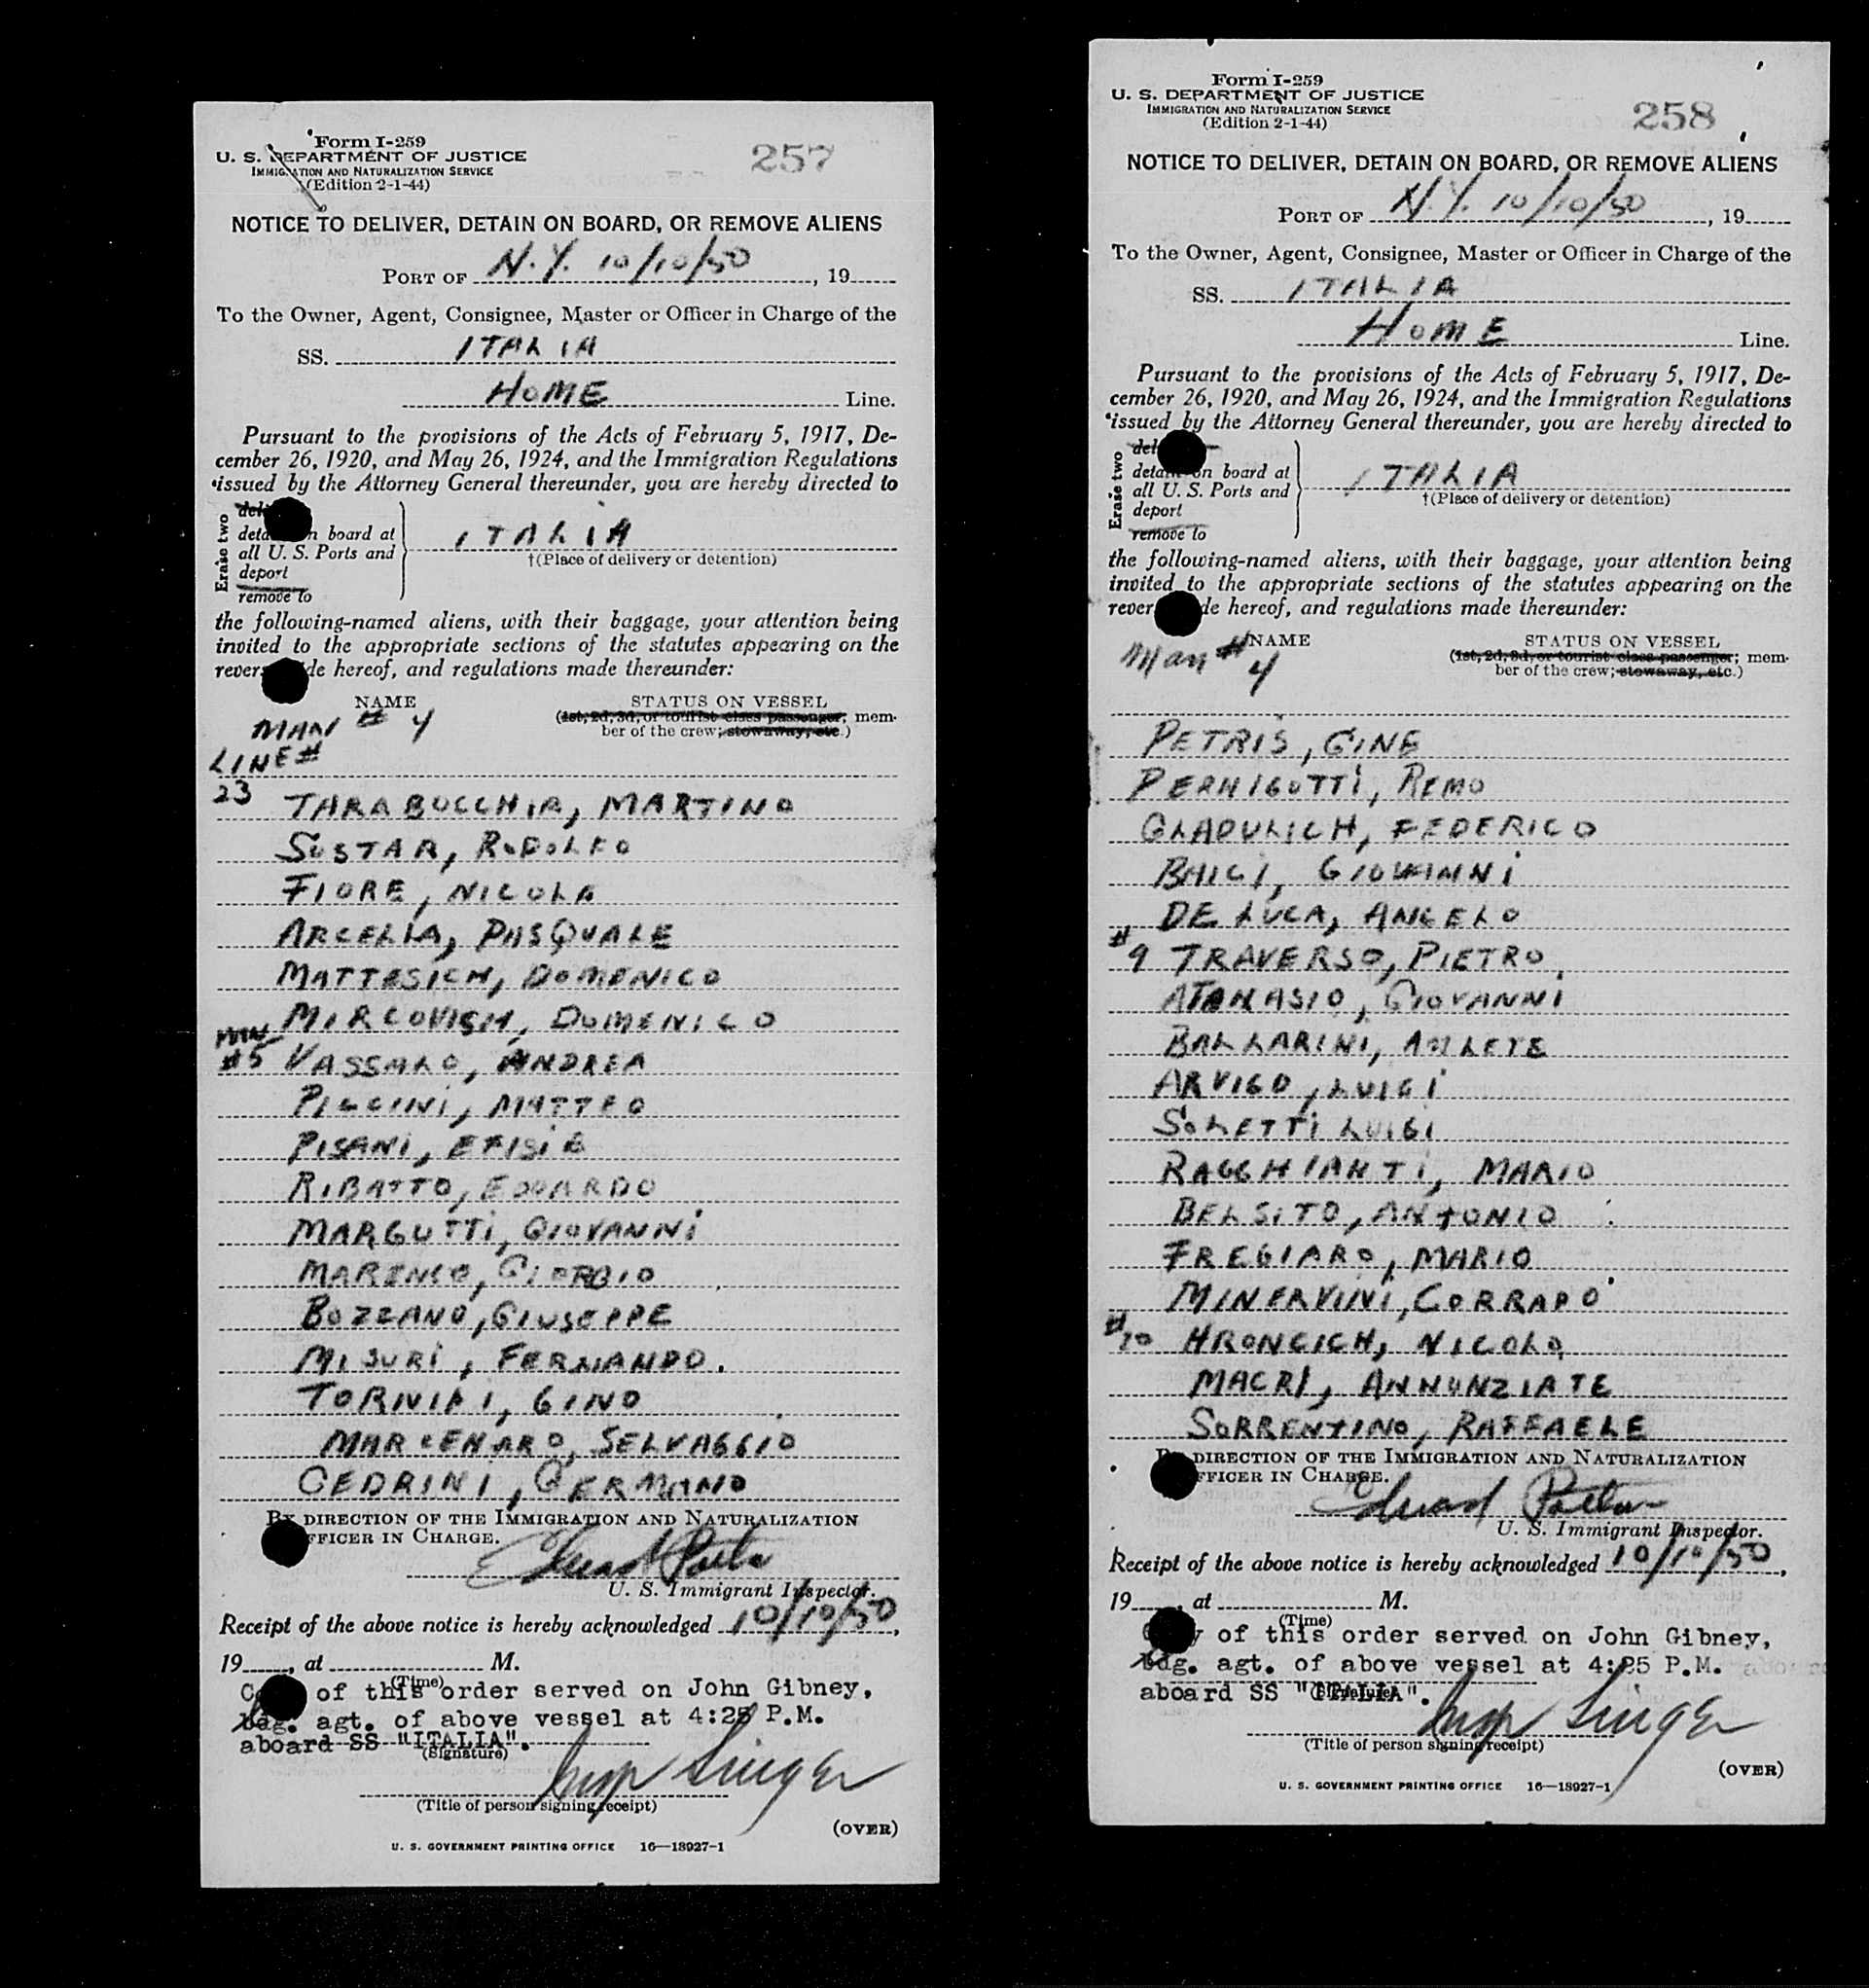 Form I-259
U. S. DEPARTMENT OF JUSTICE
IMMIGRATION AND NATURALIZATION SERVICE
(Edition 2-1-44)
257
NOTICE TO DELIVER, DETAIN ON BOARD, OR REMOVE ALIENS
PORT OF N.Y. 10/10/50, 19
To the Owner, Agent, Consignee, Master or Officer in Charge of the
SS. ITALIA
HOME Line.
Pursuant to the provisions of the Acts of February 5, 1917, De-
cember 26, 1920, and May 26, 1924, and the Immigration Regulations
issued by the Attorney General thereunder, you are hereby directed to
Erase two
detain on board at
all U. S. Ports and
deport
remove to
ITALIA
†(Place of delivery or detention)
the following-named aliens, with their baggage, your attention being
invited to the appropriate sections of the statutes appearing on the
reverse side hereof, and regulations made thereunder:
NAME STATUS ON VESSEL
MAN # 4 (1st, 2d, 3d, or tourist class passenger; mem-
ber of the crew; stowaway, etc.)
LINE #
23 TARABOCCHIA, MARTINO
SUSTAR, RODOLFO
FIORE, NICOLA
ARCELIA, PASQUALE
MATTESICH, DOMENICO
MIRCOVISH, DOMENICO
MAN
#5 VASSALO, ANDREA
PICCINI, MATTEO
PISANI, EFISIE
RIBATTO, EDOARDO
MARGUTTI, GIOVANNI
MARENCO, GIORGIO
BOZZANO, GIUSEPPE
MISURI, FERNANDO.
GINO
MARCENARO, SELVAGGIO
CEDRINI, GERMANO
BY DIRECTION OF THE IMMIGRATION AND NATURALIZATION
OFFICER IN CHARGE.
U. S. Immigrant Inspector.
Receipt of the above notice is hereby acknowledged 10/10/50,
19, at M.
(Time)
Copy of this order served on John Gibney,
bdg. agt. of above vessel at 4:25 P.M.
aboard SS "ITALIA".
(Signature)
Insp Singer
(Title of person signing receipt)
(OVER)
U. S. GOVERNMENT PRINTING OFFICE 16—18927-1
Form I-259
U. S. DEPARTMENT OF JUSTICE
IMMIGRATION AND NATURALIZATION SERVICE
(Edition 2-1-44)
258
NOTICE TO DELIVER, DETAIN ON BOARD, OR REMOVE ALIENS
PORT OF N.Y. 10/10/50, 19
To the Owner, Agent, Consignee, Master or Officer in Charge of the
SS. ITALIA
HOME Line.
Pursuant to the provisions of the Acts of February 5, 1917, De-
cember 26, 1920, and May 26, 1924, and the Immigration Regulations
issued by the Attorney General thereunder, you are hereby directed to
Erase two
detain on board at
all U. S. Ports and
deport
remove to
ITALIA
†(Place of delivery or detention)
the following-named aliens, with their baggage, your attention being
invited to the appropriate sections of the statutes appearing on the
reverse side hereof, and regulations made thereunder:
NAME STATUS ON VESSEL
Man # 4 (1st, 2d, 3d, or tourist class passenger; mem-
ber of the crew; stowaway, etc.)
PETRIS, GINE
PERNIGOTTI, REMO
GLADULICH, FEDERICO
BAICI, GIOVANNI
DE LUCA, ANGELO
#9 TRAVERSO, PIETRO
ATANASIO, GIOVANNI
BALLARINI, AMLETE
ARVIGO, LUIGI
SOLETTI LUIGI
RAGGHIANTI, MARIO
BELSITO, ANTONIO
FREGIARO, MARIO
MINERVINI, CORRADO
#10 HRONCICH, NICOLO
MACRI, ANNUNZIATE
SORRENTINO, RAFFAELE
BY DIRECTION OF THE IMMIGRATION AND NATURALIZATION
OFFICER IN CHARGE.
U. S. Immigrant Inspector.
Receipt of the above notice is hereby acknowledged 10/10/50,
19, at M.
(Time)
Copy of this order served on John Gibney,
bdg. agt. of above vessel at 4:25 P.M.
aboard SS "ITALIA".
(Signature)
Insp Singer
(Title of person signing receipt)
(OVER)
U. S. GOVERNMENT PRINTING OFFICE 16—18927-1